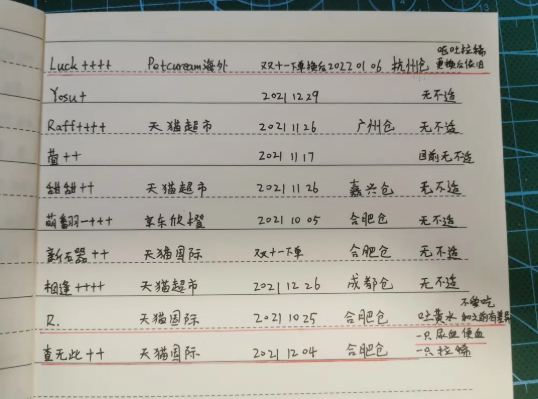 Luck++++ Petcuream海外 双十一下单换后20220106 杭州仓 呕吐拉稀 更换后依旧
Yosu+ 20212229 无不适
Raff++++ 天猫超市 20211126 广州仓 无不适
萱++ 20211117 目前无不适
甜甜++ 天猫超市 20211126 嘉兴仓 无不适
萌翻羽一+++ 京东欣橙 20211005 合肥仓 无不适
新石器++ 天猫国际 双十一下单 合肥仓 无不适
相逢++++ 天猫超市 20211226 成都仓 无不适
R. 天猫国际 20211025 合肥仓 不爱吃 吐黄水 和之前有差异
查无此++ 天猫国际 20211204 合肥仓 一只尿血便血 一只拉稀